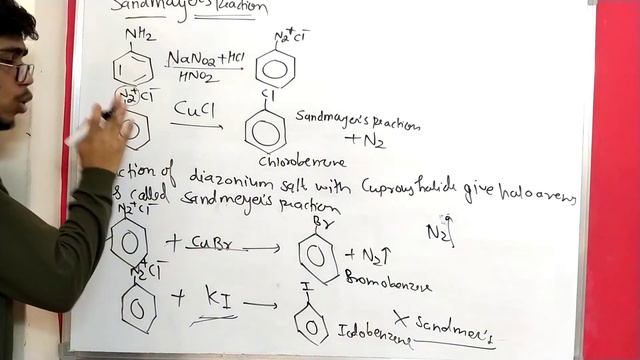 Sandmayer's reaction
NH2
NaNO2 + HCl
HNO2
N2+Cl-
N2+Cl-
CuCl
Cl
Sandmayer's reaction
+ N2
Chlorobenzene
ction of diazonium salt with Cuprous halide give haloarenes
s called Sandmeyer's reaction
N2+Cl-
+ CuBr
Br
+ N2↑
N2↑
Bromobenzene
N2+Cl-
+ KI
I
Iodobenzene
X Sandmer's